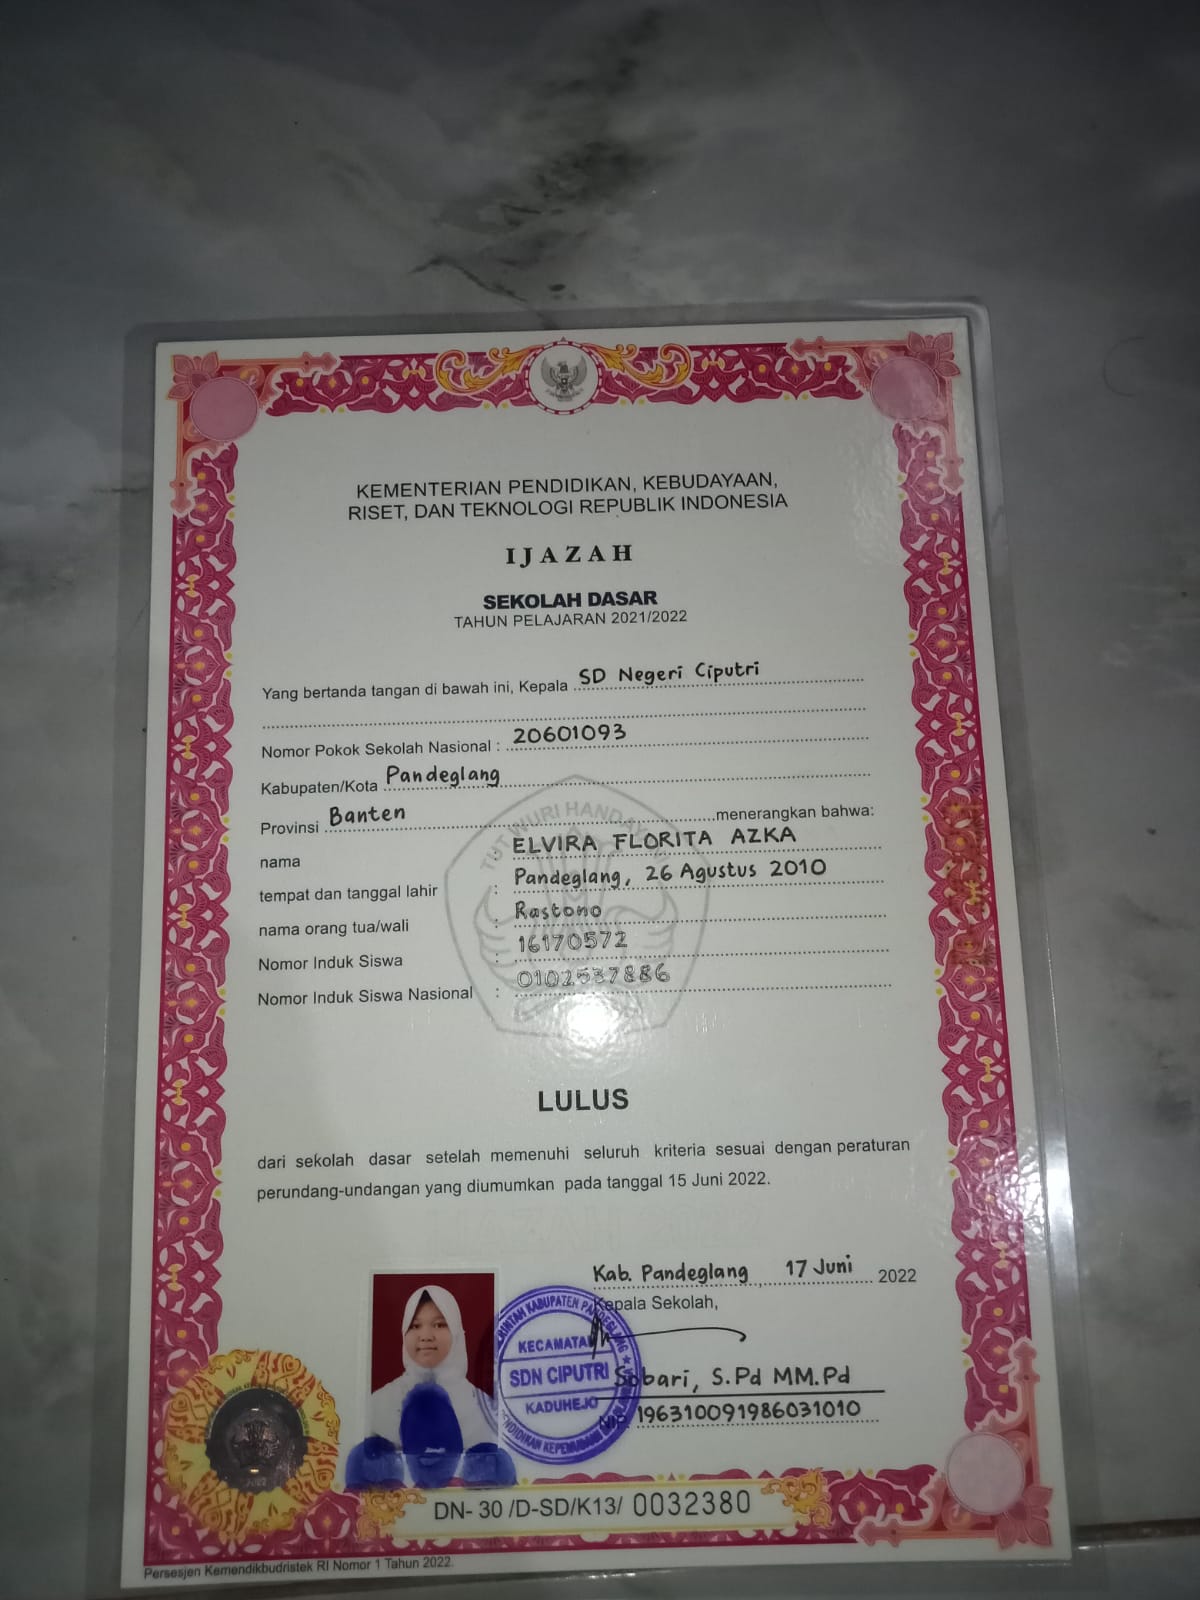 KEMENTERIAN PENDIDIKAN, KEBUDAYAAN,
RISET, DAN TEKNOLOGI REPUBLIK INDONESIA
IJAZAH
SEKOLAH DASAR
TAHUN PELAJARAN 2021/2022
Yang bertanda tangan di bawah ini, Kepala SD Negeri Ciputri
Nomor Pokok Sekolah Nasional : 20601093
Kabupaten/Kota Pandeglang
Provinsi Banten menerangkan bahwa:
nama ELVIRA FLORITA AZKA
tempat dan tanggal lahir : Pandeglang, 26 Agustus 2010
nama orang tua/wali : Rastono
Nomor Induk Siswa : 16170572
Nomor Induk Siswa Nasional : 0102537886
TUT WURI HANDAY
LULUS
dari sekolah dasar setelah memenuhi seluruh kriteria sesuai dengan peraturan
perundang-undangan yang diumumkan pada tanggal 15 Juni 2022.
Kab. Pandeglang, 17 Juni 2022
Kepala Sekolah,
KABUPATEN
KECAMATAN
SDN CIPUTRI
KADUHEJO
Sobari, S.Pd MM.Pd
NIP. 196310091986031010
DN- 30 /D-SD/K13/ 0032380
Persesjen Kemendikbudristek RI Nomor 1 Tahun 2022.